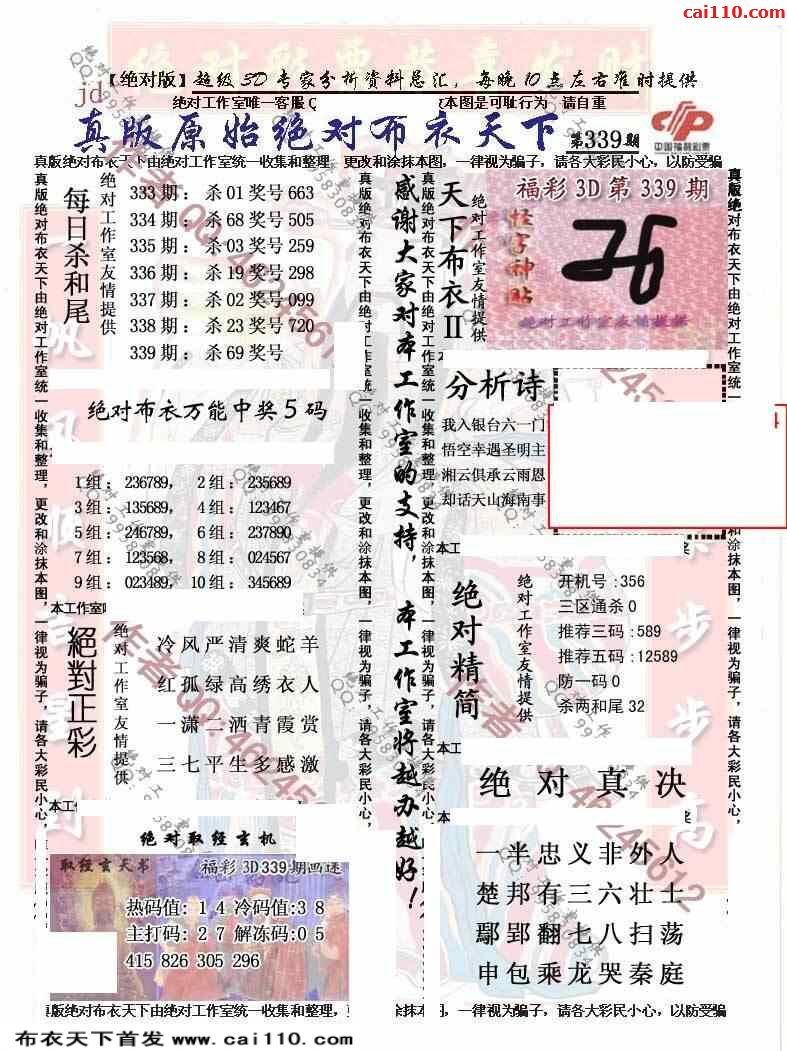 cai110.com
【绝对版】超级3D专家分析资料总汇，每晚10点左右准时提供
jd
绝对工作室唯一客服Q
本图是可耻行为 请自重
真版原始绝对布衣天下
第339期
中国福利彩票
真版绝对布衣天下由绝对工作室统一收集和整理，更改和涂抹本图，一律视为骗子，请各大彩民小心，以防受骗
真版绝对布衣天下由绝对工作室统一收集和整理，更改和涂抹本图，一律视为骗子，请各大彩民小心，
每日杀和尾
绝对工作室友情提供
333期：杀01奖号663
334期：杀68奖号505
335期：杀03奖号259
336期：杀19奖号298
337期：杀02奖号099
338期：杀23奖号720
339期：杀69奖号
绝对布衣万能中奖5码
1组：236789，2组：235689
3组：135689，4组：123467
5组：246789，6组：237890
7组：123568，8组：024567
9组：023489，10组：345689
本工作室
絕對正彩
绝对工作室友情提供
冷风严清爽蛇羊
红孤绿高绣衣人
一潇二洒青霞赏
三七平生多感激
本工作
绝对取经玄机
取经玄天书
福彩3D339期四迷
热码值：1 4 冷码值:3 8
主打码：2 7 解冻码:0 5
415 826 305 296
真版绝对布衣天下由绝对工作室统一收集和整理，更改和涂抹本图，一律视为骗子，请各大彩民小心，
感谢大家对本工作室的支持，本工作室将越办越好！
真版绝对布衣天下由绝对工作室统一收集和整理，更改和涂抹本图，一律视为骗子，请各大彩民小心，
天下布衣II
绝对工作室友情提供
福彩3D第339期
怪字神贴
绝对工作室友情提供
分析诗
我入银台六一门
悟空幸遇圣明主
湘云俱承云雨恩
却话天山海南事
本工
奖
绝对精简
绝对工作室友情提供
开机号:356
三区通杀0
推荐三码:589
推荐五码:12589
防一码0
杀两和尾32
本工
绝对真决
本
奖
一半忠义非外人
楚邦有三六壮士
鄢郢翻七八扫荡
申包乘龙哭秦庭
真版绝对布衣天下由绝对工作室统一
和涂抹本图，一律视为骗子，请各大彩民小心，
真版绝对布衣天下由绝对工作室统一收集和整理，更
涂抹本图，一律视为骗子，请各大彩民小心，以防受骗
布衣天下首发 www.cai110.com